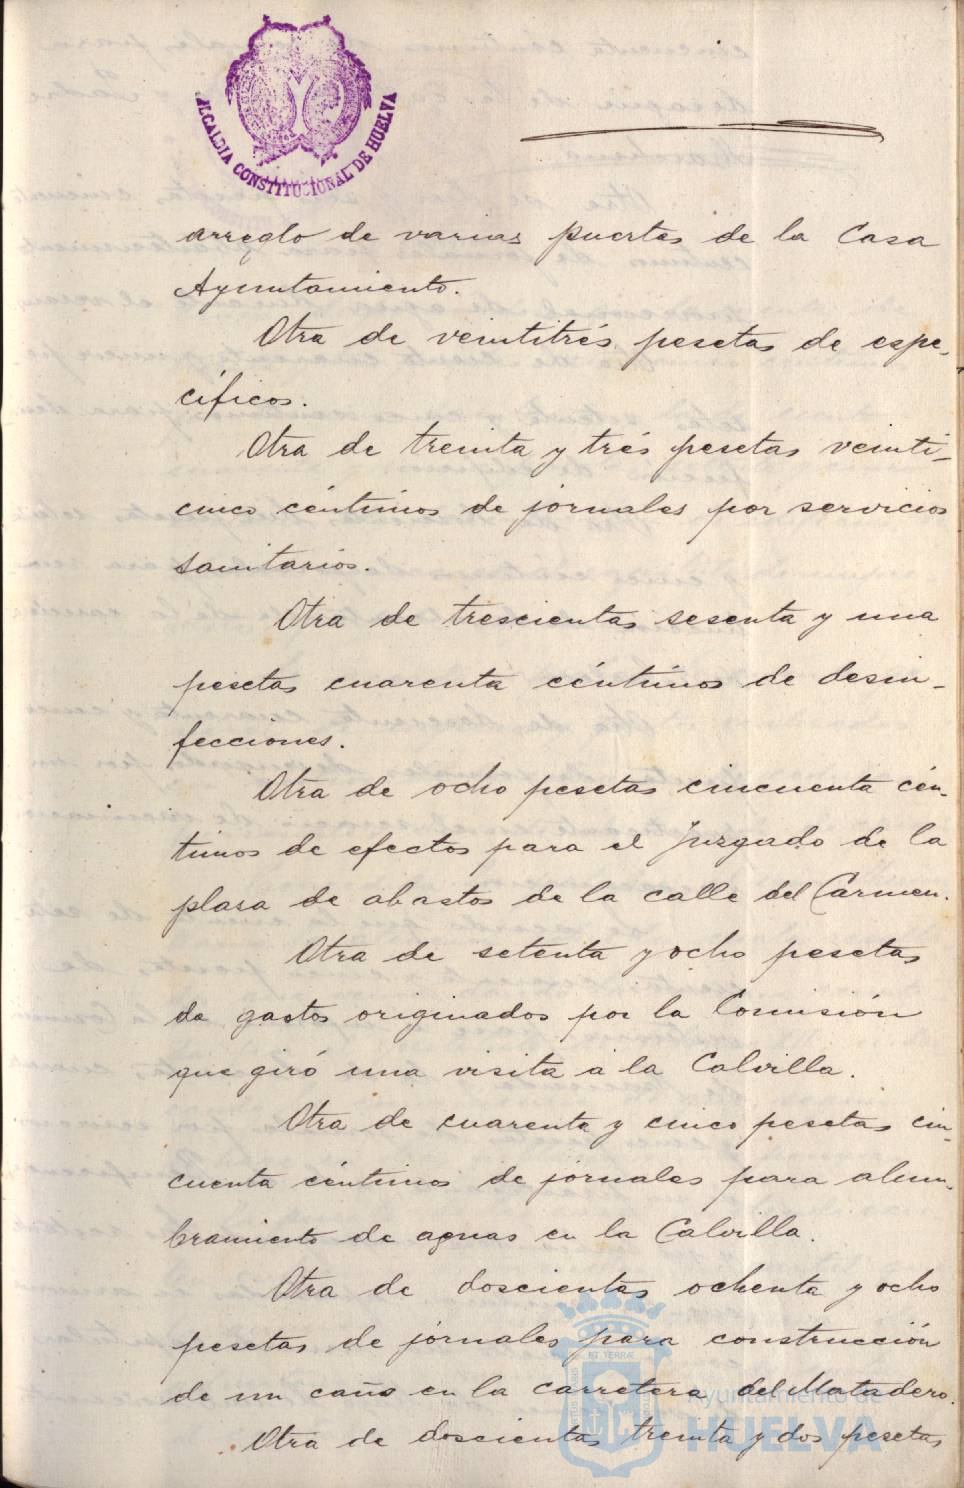 ALCALDIA CONSTITUCIONAL DE HUELVA
arreglo de varias puertas de la Casa
Ayuntamiento.
Otra de veintitrés pesetas de espe-
cíficos.
Otra de treinta y trés pesetas veinti-
cinco céntimos de jornales por servicios
sanitarios.
Otra de trescientas sesenta y una
pesetas cuarenta céntimos de desin-
fecciones.
Otra de ocho pesetas cincuenta cén-
timos de efectos para el Juzgado de la
plasa de abastos de la calle del Carmen.
Otra de setenta y ocho pesetas
de gastos originados por la Comisión
que giró una visita a la Calvilla.
Otra de cuarenta y cinco pesetas cin-
cuenta céntimos de jornales para alum-
bramiento de aguas en la Calvilla.
Otra de doscientas ochenta y ocho
pesetas de jornales para construcción
de un caño en la carretera del Matadero.
Otra de doscientas treinta y dos pesetas
Ayuntamiento de
HUELVA